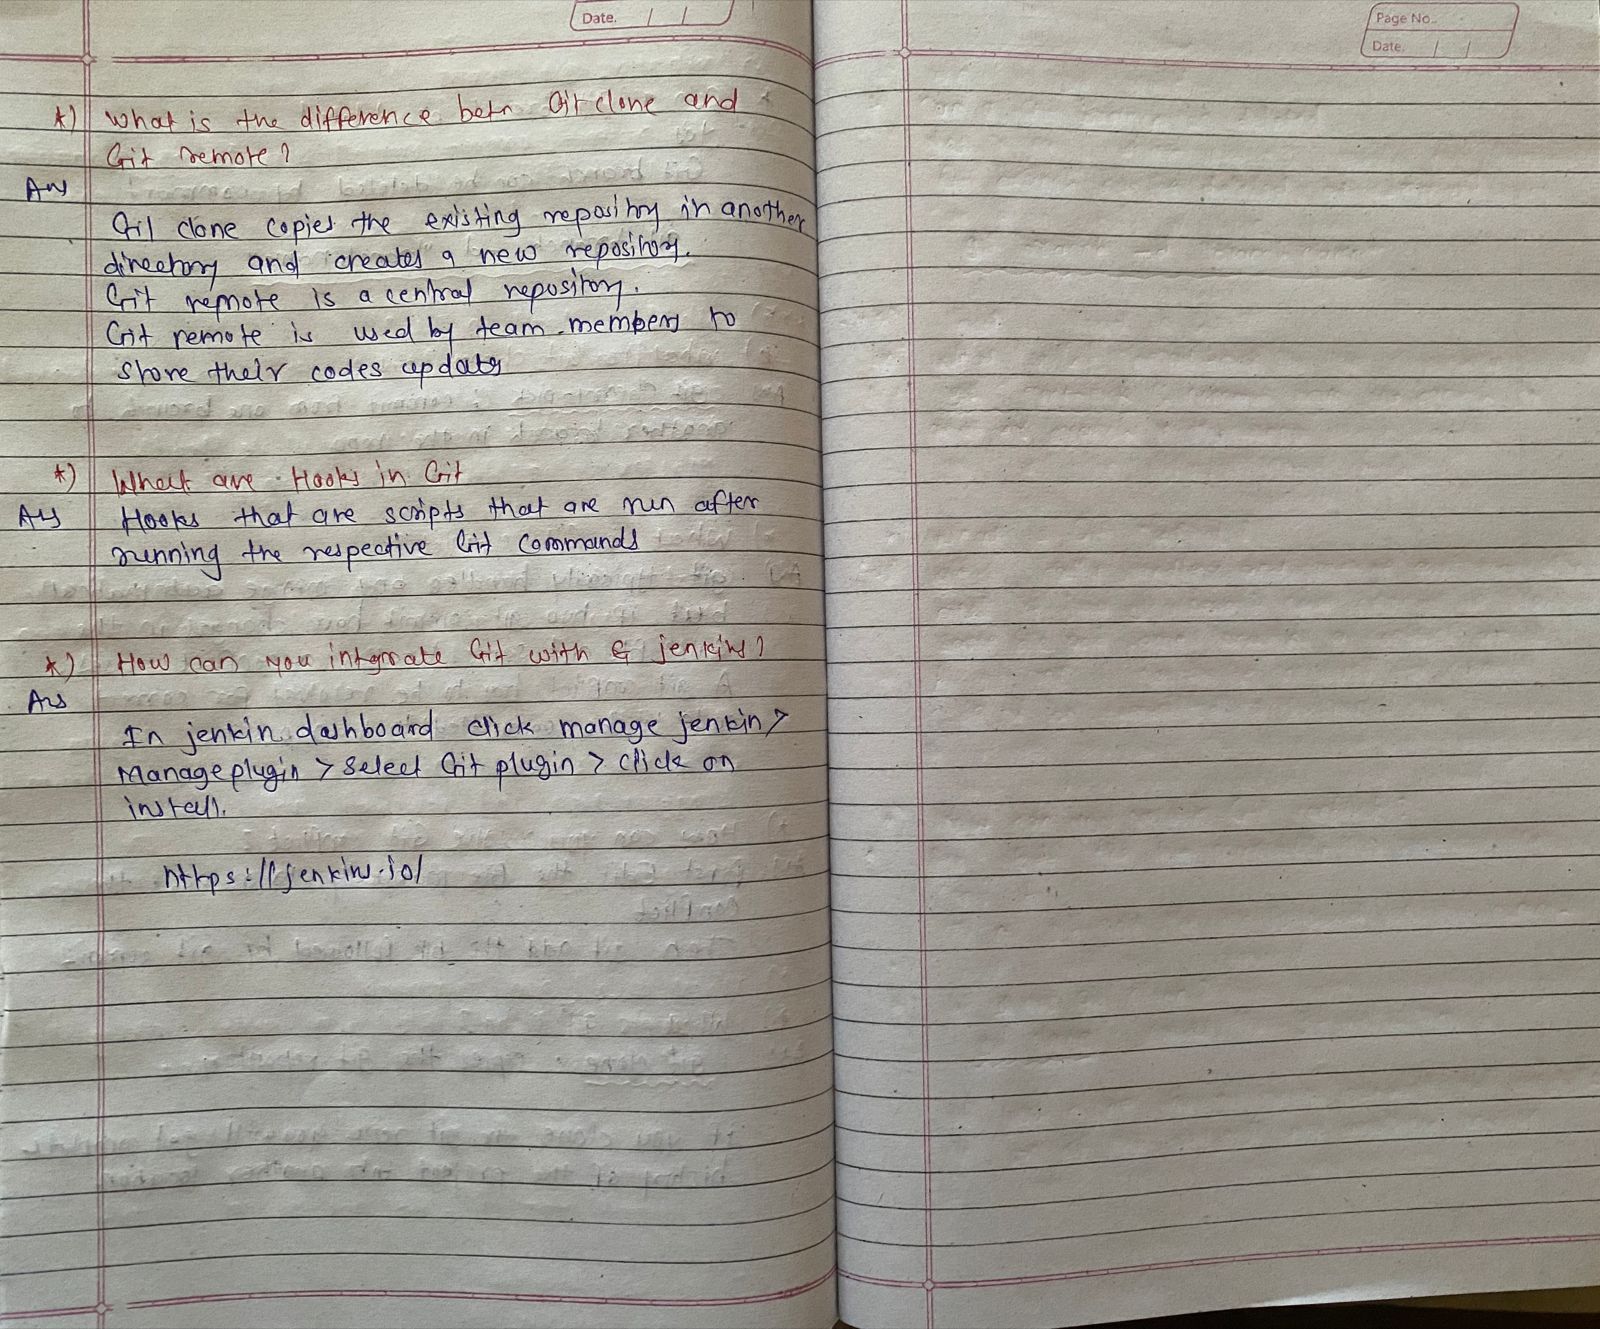 Date. / /
*) What is the difference betn Git clone and
Git remote?
Ans
Git clone copies the existing repository in another
directory and creates a new repository.
Git remote is a central repository.
Git remote is used by team members to
store their codes updates
*) What are Hooks in Git
Ans Hooks that are scripts that are run after
running the respective Git commands
*) How can you integrate Git with & jenkins?
Ans
In jenkin dashboard click manage jenkin >
Manage plugin > Select Git plugin > click on
install.
https://jenkins.io/
Page No.
Date. / /